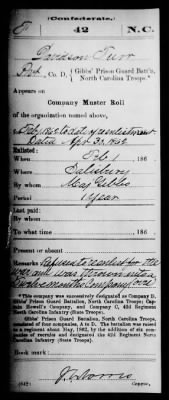 (Confederate.)
F 42 N.C.
Davidson
Pvt., Co. D, Gibbs' Prison Guard Batt'n, North Carolina Troops.*
Appears on
Company Muster Roll
of the organization named above,
Dated Apr 30, 1862
Enlisted:
When Feb 1, 186
Where Salisbury
By whom Maj Gibbs
Period 1 year
Last paid:
By whom
To what time , 186 .
Present or absent
Remarks: Refuses to enlist for the
war and was thrown into a
twelve months Company
*This company was successively designated as Company D,
Gibbs' Prison Guard Battalion, North Carolina Troops; Cap-
tain Howell's Company, and Company C, 42d Regiment
North Carolina Infantry (State Troops).
Gibbs' Prison Guard Battalion, North Carolina Troops,
consisted of four companies, A to D. The battalion was raised
to a regiment about May, 1862, by the addition of six com-
panies of recruits and designated the 42d Regiment North
Carolina Infantry (State Troops).
Book mark:
(642)
Copyist.